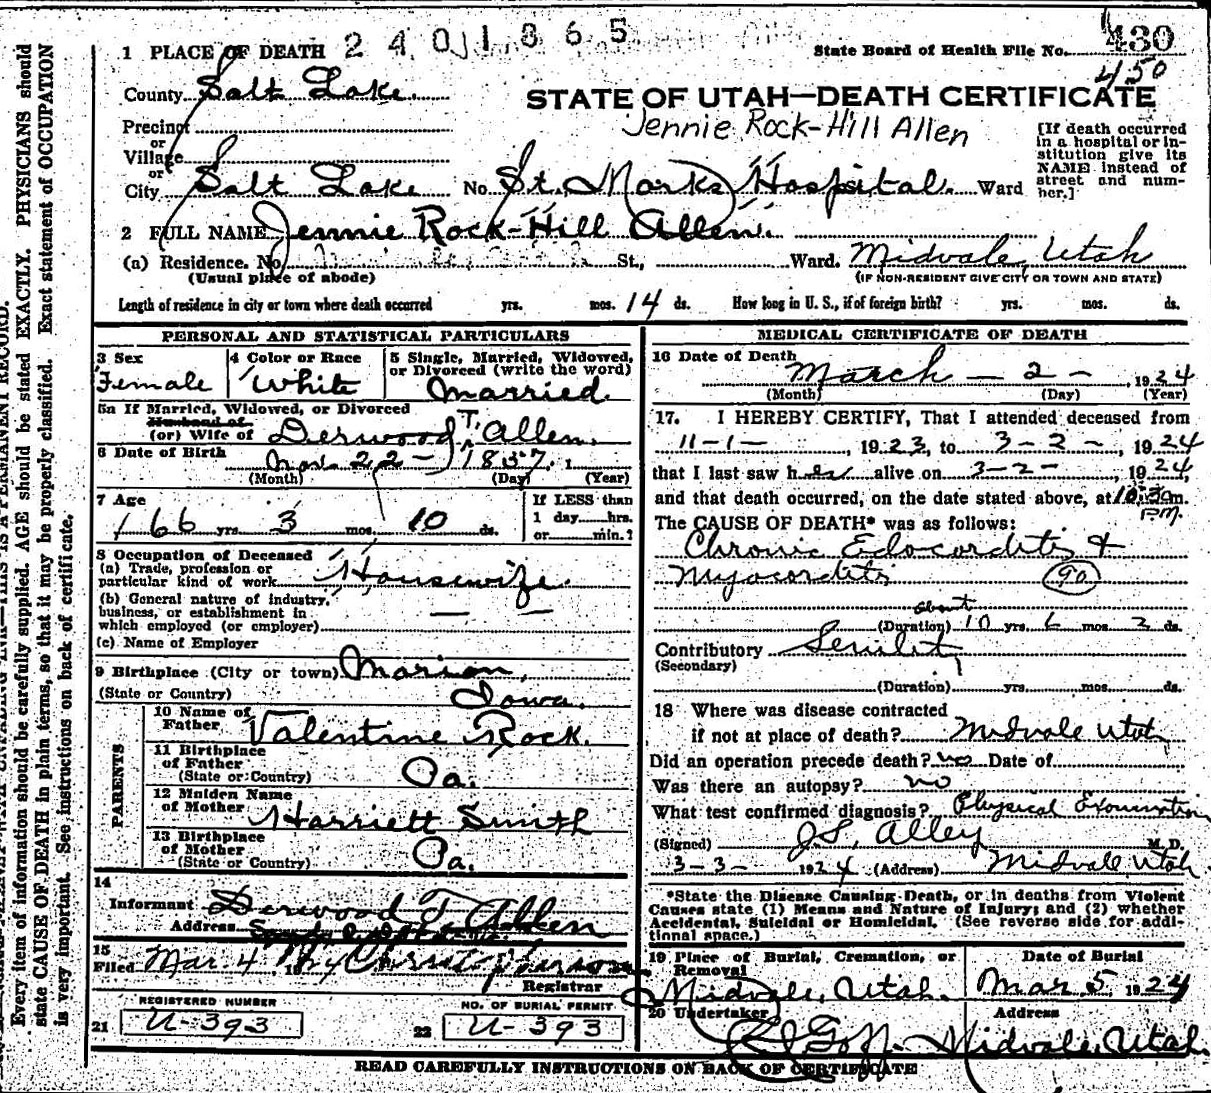 2401865
State Board of Health File No. 430
450
1 PLACE OF DEATH
County Salt Lake
STATE OF UTAH—DEATH CERTIFICATE
Jennie Rock-Hill Allen
Precinct
or
Village
or
City Salt Lake No. St. Marks Hospital. Ward
[If death occurred
in a hospital or in-
stitution give its
NAME instead of
street and num-
ber.]
2 FULL NAME Jennie Rock-Hill Allen.
(a) Residence. No. St., Ward. Midvale, Utah
(Usual place of abode)
(IF NON-RESIDENT GIVE CITY OR TOWN AND STATE)
Length of residence in city or town where death occurred yrs. mos. 14 ds. How long in U. S., if of foreign birth? yrs. mos. ds.
PERSONAL AND STATISTICAL PARTICULARS
3 Sex
Female
4 Color or Race
White
5 Single, Married, Widowed,
or Divorced (write the word)
Married.
5a If Married, Widowed, or Divorced
Husband of
(or) Wife of Derwood T. Allen.
6 Date of Birth Nov. 22 - 1857. 1
(Month) (Day) (Year)
7 Age
66 yrs. 3 mos. 10 ds.
If LESS than
1 day hrs.
or min.?
8 Occupation of Deceased
(a) Trade, profession or
particular kind of work Housewife.
(b) General nature of industry,
business, or establishment in
which employed (or employer)
(c) Name of Employer
9 Birthplace (City or town) Marion,
(State or Country) Iowa.
PARENTS
10 Name of
Father Valentine Rock.
11 Birthplace
of Father
(State or Country) Pa.
12 Maiden Name
of Mother Harriett Smith
13 Birthplace
of Mother
(State or Country) Pa.
14
Informant Derwood T Allen
Address
15
Filed Mar. 4, 19
Registrar
REGISTERED NUMBER
21 U-393
NO. OF BURIAL PERMIT
22 U-393
MEDICAL CERTIFICATE OF DEATH
16 Date of Death
March - 2 -, 1924
(Month) (Day) (Year)
17. I HEREBY CERTIFY, That I attended deceased from
11-1-, 1923, to 3-2-, 1924
that I last saw her alive on 3-2-, 1924,
and that death occurred, on the date stated above, at 10:30 m.
P.M.
The CAUSE OF DEATH* was as follows:
Chronic Edocorditis &
Myocorditis 90
about
(Duration) 10 yrs. 6 mos. 2 ds.
Contributory Senility
(Secondary)
(Duration) yrs. mos. ds.
18 Where was disease contracted
if not at place of death? Midvale Utah
Did an operation precede death? no Date of
Was there an autopsy? no
What test confirmed diagnosis? Physical Examination
(Signed) J.S. Alley M. D.
3-3-1924 (Address) Midvale, Utah
*State the Disease Causing Death, or in deaths from Violent
Causes state (1) Means and Nature of Injury; and (2) whether
Accidental, Suicidal or Homicidal. (See reverse side for addi-
tional space.)
19 Place of Burial, Cremation, or
Removal
Midvale, Utah.
Date of Burial
Mar 5, 1924
20 Undertaker
Goff
Address
Midvale, Utah.
READ CAREFULLY INSTRUCTIONS ON BACK OF CERTIFICATE
Every item of information should be carefully supplied. AGE should be stated EXACTLY. PHYSICIANS should
state CAUSE OF DEATH in plain terms, so that it may be properly classified. Exact statement of OCCUPATION
is very important. See instructions on back of certificate.